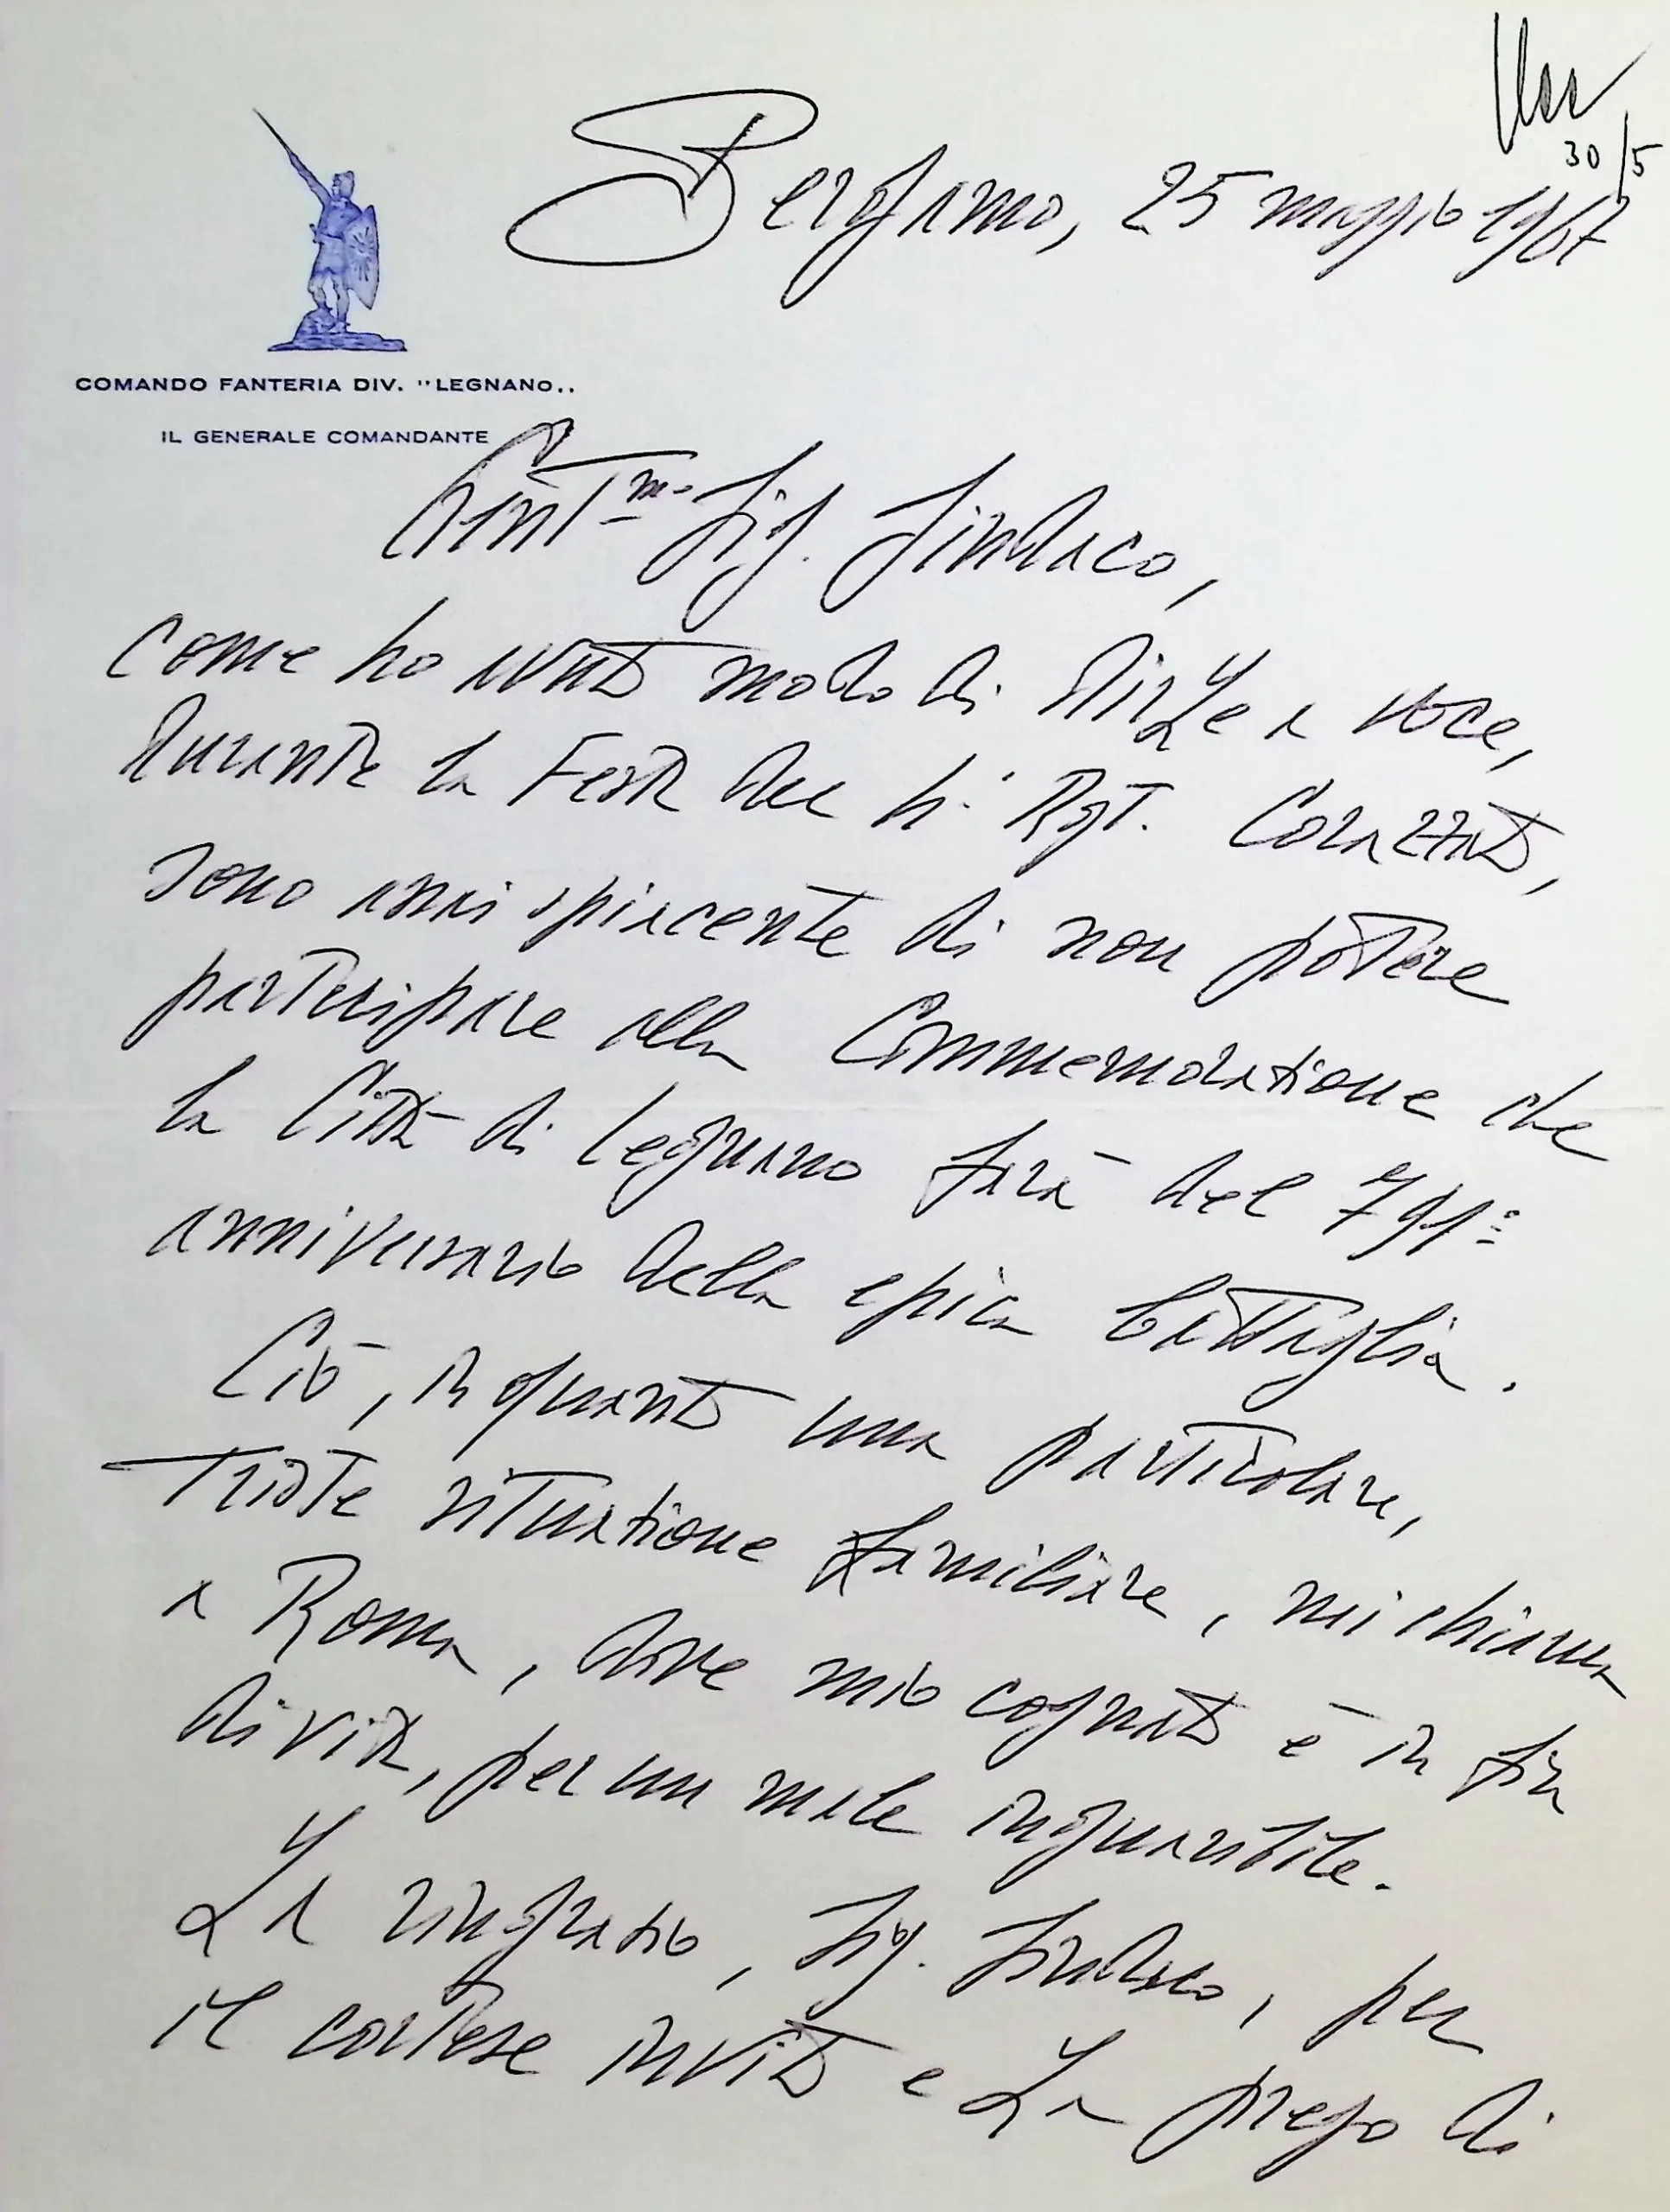 30/5
Bergamo, 25 maggio 1967
COMANDO FANTERIA DIV. "LEGNANO„
IL GENERALE COMANDANTE
Gent.mo Sig. Sindaco,
come ho avuto modo di dirLe a voce,
durante la Festa del 4° Rgt. Corazzato,
sono assai spiacente di non potere
partecipare alla Commemorazione che
la Città di Legnano farà del 791°
anniversario della epica battaglia.
Ciò, in quanto una particolare,
triste situazione familiare, mi chiama
a Roma, dove mio cognato è in fin
di vita, per un male inguaribile.
La ringrazio, Sig. Sindaco, per
il cortese invito e La prego di